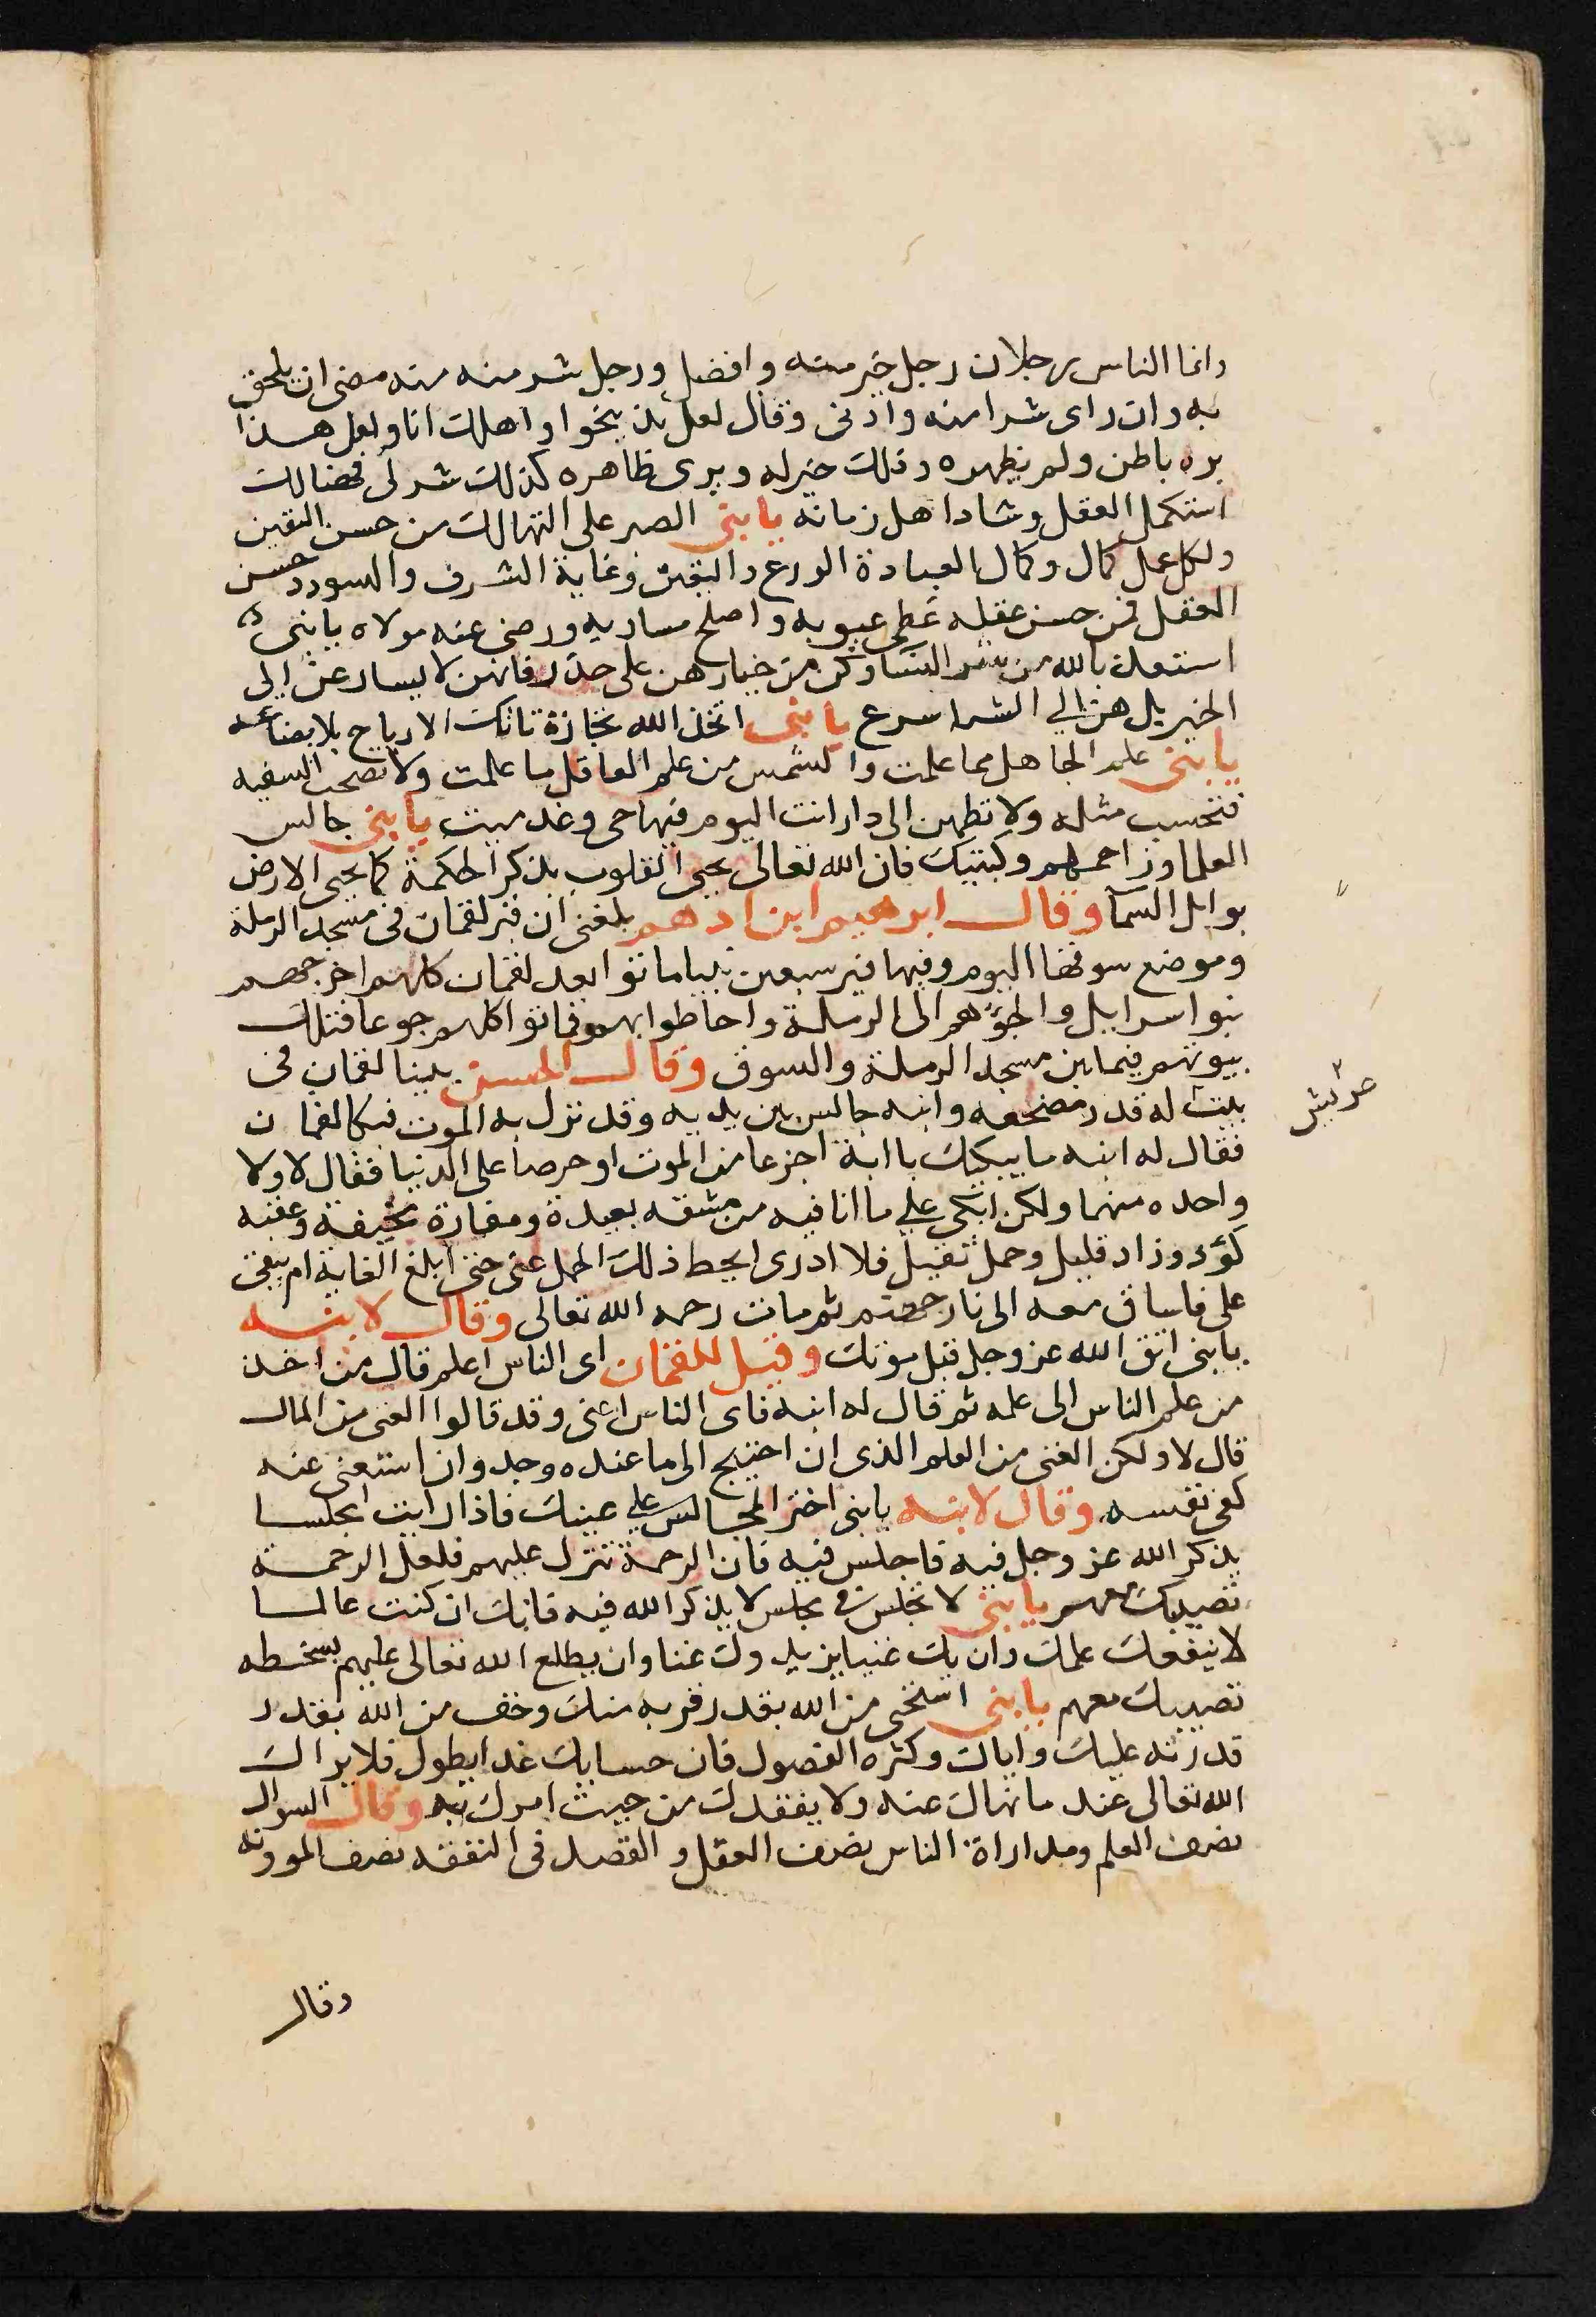 وانما الناس رجلان رجل خير منه وافضل ورجل شر منه منه مضى ان يلحق
به وان راى شرا منه وادنى وقال لعل ذا ينجوا واهلك انا ولعل هذا
بره باطن ولم يظهره وذلك خير له ويرى ظاهره كذلك شر لى فهنالك
استكمل العقل وشاد اهل زمانه يا بنى الصبر على التهالك من حسن اليقين
ولكل عمل كمال وكمال العبادة الورع واليقين وغاية الشرف والسودد حسن
العقل فمن حسن عقله غطى عيوبه واصلح مساويه ورضى عنه مولاه يا بنى
استعذ بالله من شر النسا وكن من خيارهن على حذر فانهن لا يسارعن الى
الخير بل هن الي الشر اسرع يا بنى اتخذ الله تجارة تاتك الارباح بلا بضاعه
يا بنى علم الجاهل مما علمت والتمس من علم العاقل ما علمت ولا تصحب السفيه
فتحسب مثله ولا تطمن الى دار انت اليوم فيها حى وغد ميت يا بنى جالس
العلما وزاحمهم بركبتيك فان الله تعالى يحيى القلوب بذكر الحكمة كما يحيى الارض
بوابل السمآ وقال ابرهيم ابن ادهم بلغنى ان قبر لقمان فى مسجد الرملة
وموضع سوقها اليوم وفيها قبر سبعين نبيا ماتوا بعد لقمان كلهم اخرجهم
بنوا اسرايل والجؤهم الى الرملة واحاطوا بهم فماتوا كلهم جوعا فتلك
بيوتهم فيما بين مسجد الرملة والسوق وقال الحسن بينا لقمان فى
بيت له قدر مضجعه وابنه جالس بين يديه وقد نزل به الموت فبكا لقمان
فقال له ابنه ما يبكيك يا ابة اجزعا من الموت او حرصا على الدنيا فقال لا ولا
واحده منهما ولكن ابكى علي ما انا فيه من مشقه بعيدة ومفازة مخيفة وعقبه
كؤد وزاد قليل وحمل ثقيل فلا ادرى ايحط ذلك الحمل عنى حتى ابلغ الغاية ام يبقى
على فاساق معه الى نار جهنم ثم مات رحمه الله تعالى وقال لابنه
يا بنى اتق الله عز وجل قبل موتك وقيل للقمان اى الناس اعلم قال من اخذ
من علم الناس الى علمه ثم قال له ابنه فاى الناس اغنى وقد قالوا الغنى من المال
قال لا ولكن الغنى من العلم الذى ان احتيج الى ما عنده وجد وان استغنى عنه
كفى نفسه وقال لابنه يا بنى اختر المجالس علي عينك فاذا رايت مجلسا
يذكر الله عز وجل فيه فاجلس فيه فان الرحمة تنزل عليهم فلعل الرحمة
تصيبك معهم يا بنى لا تجلس فى مجلس لا يذكر الله فيه فانك ان كنت عالما
لا ينفعك علمك وان يك غنيا يزيدوك عنا وان يطلع الله تعالى عليهم بسخطه
تصيبك معهم يا بنى استحى من الله بقدر قربه منك وخف من الله بقدر
قدرته عليك واياك وكثره الفضول فان حسابك غدا يطول فلا يراك
الله تعالى عند ما نهاك عنه ولا يفقدك من حيث امرك به وقال السوال
نصف العلم ومداراة الناس نصف العقل والقصد فى النفقه نصف الموونه
وقال